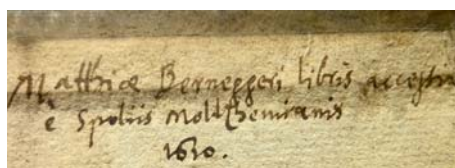 Matthiæ Berneggeri libris accessit
è Spoliis Moltzhemianis
1610.